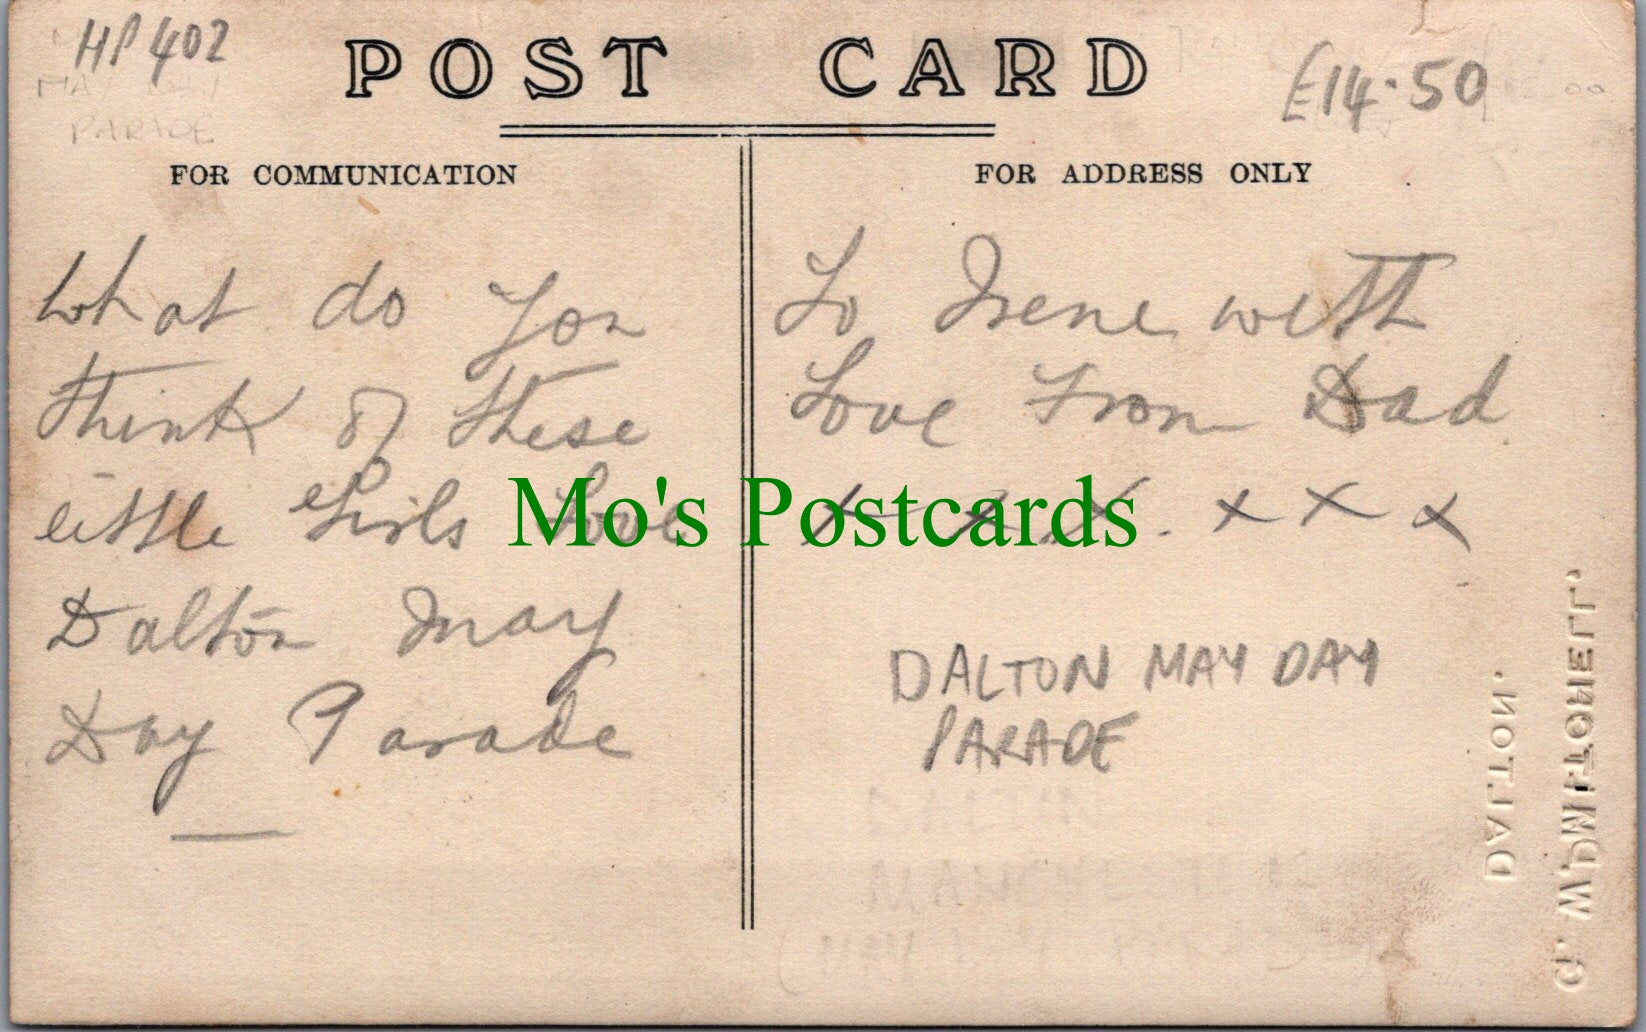 HP 402
MAY DAY
PARADE
POST CARD
£14.50
FOR COMMUNICATION
FOR ADDRESS ONLY
What do you
think of these
little Girls Love
Dalton May
Day Parade
To Irene with
Love From Dad
x x x x x x
Mo's Postcards
DALTON MAY DAY
PARADE
DALTON.